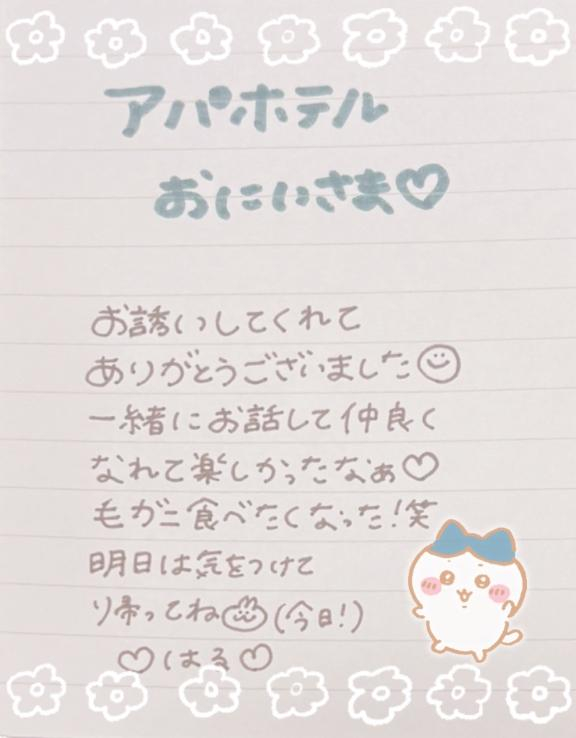 アパホテル
おにいさま♡
お誘いしてくれて
ありがとうございました☺
一緒にお話して仲良く
なれて楽しかったなぁ♡
毛ガニ食べたくなった！笑
明日は気をつけて
り帰ってね🐰(今日！)
♡はる♡